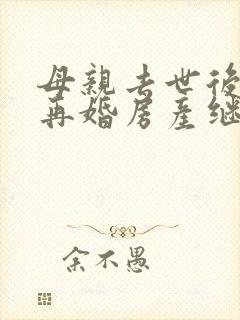 母親去世後
再婚房產繼
余不愚